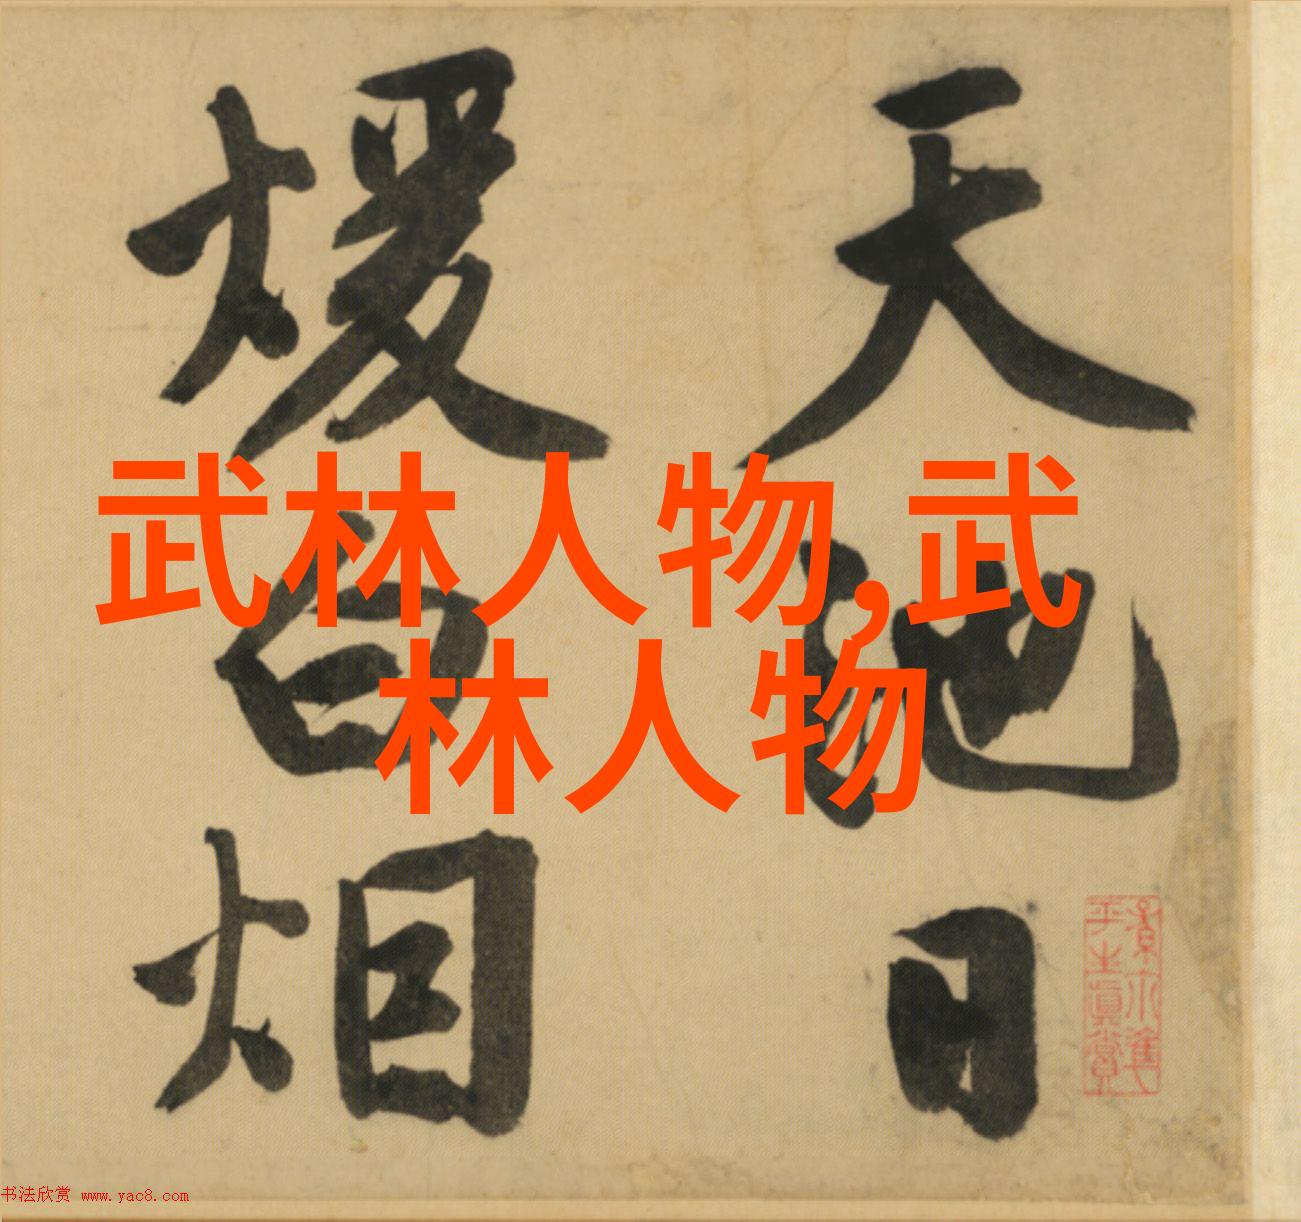 武林人物,武
林人物
天地日
煖
平生真賞
书法欣赏 www.yac8.com